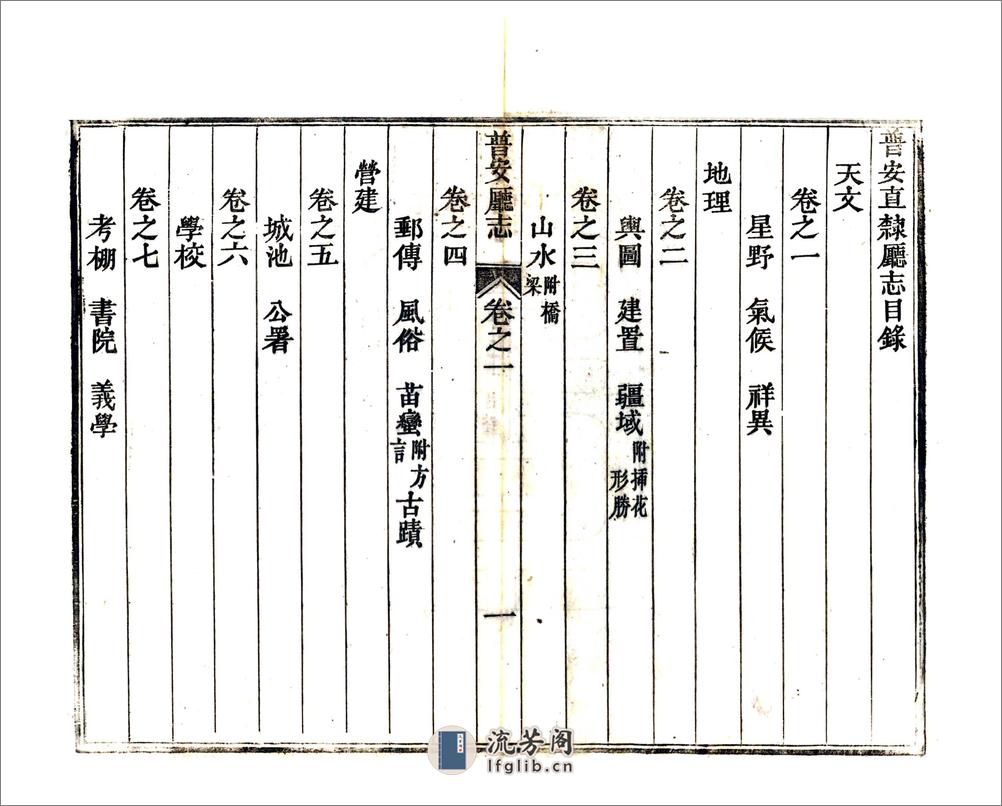 普安直隸廳志目錄
天文
卷之一
星野 氣候 祥異
地理
卷之二
輿圖 建置 疆域附插花形勝
卷之三
山水附橋梁
普安廳志 卷之一 一
卷之四
郵傳 風俗 苗蠻附方言 古蹟
營建
卷之五
城池 公署
卷之六
學校
卷之七
考棚 書院 義學
流芳阁
lfglib.cn